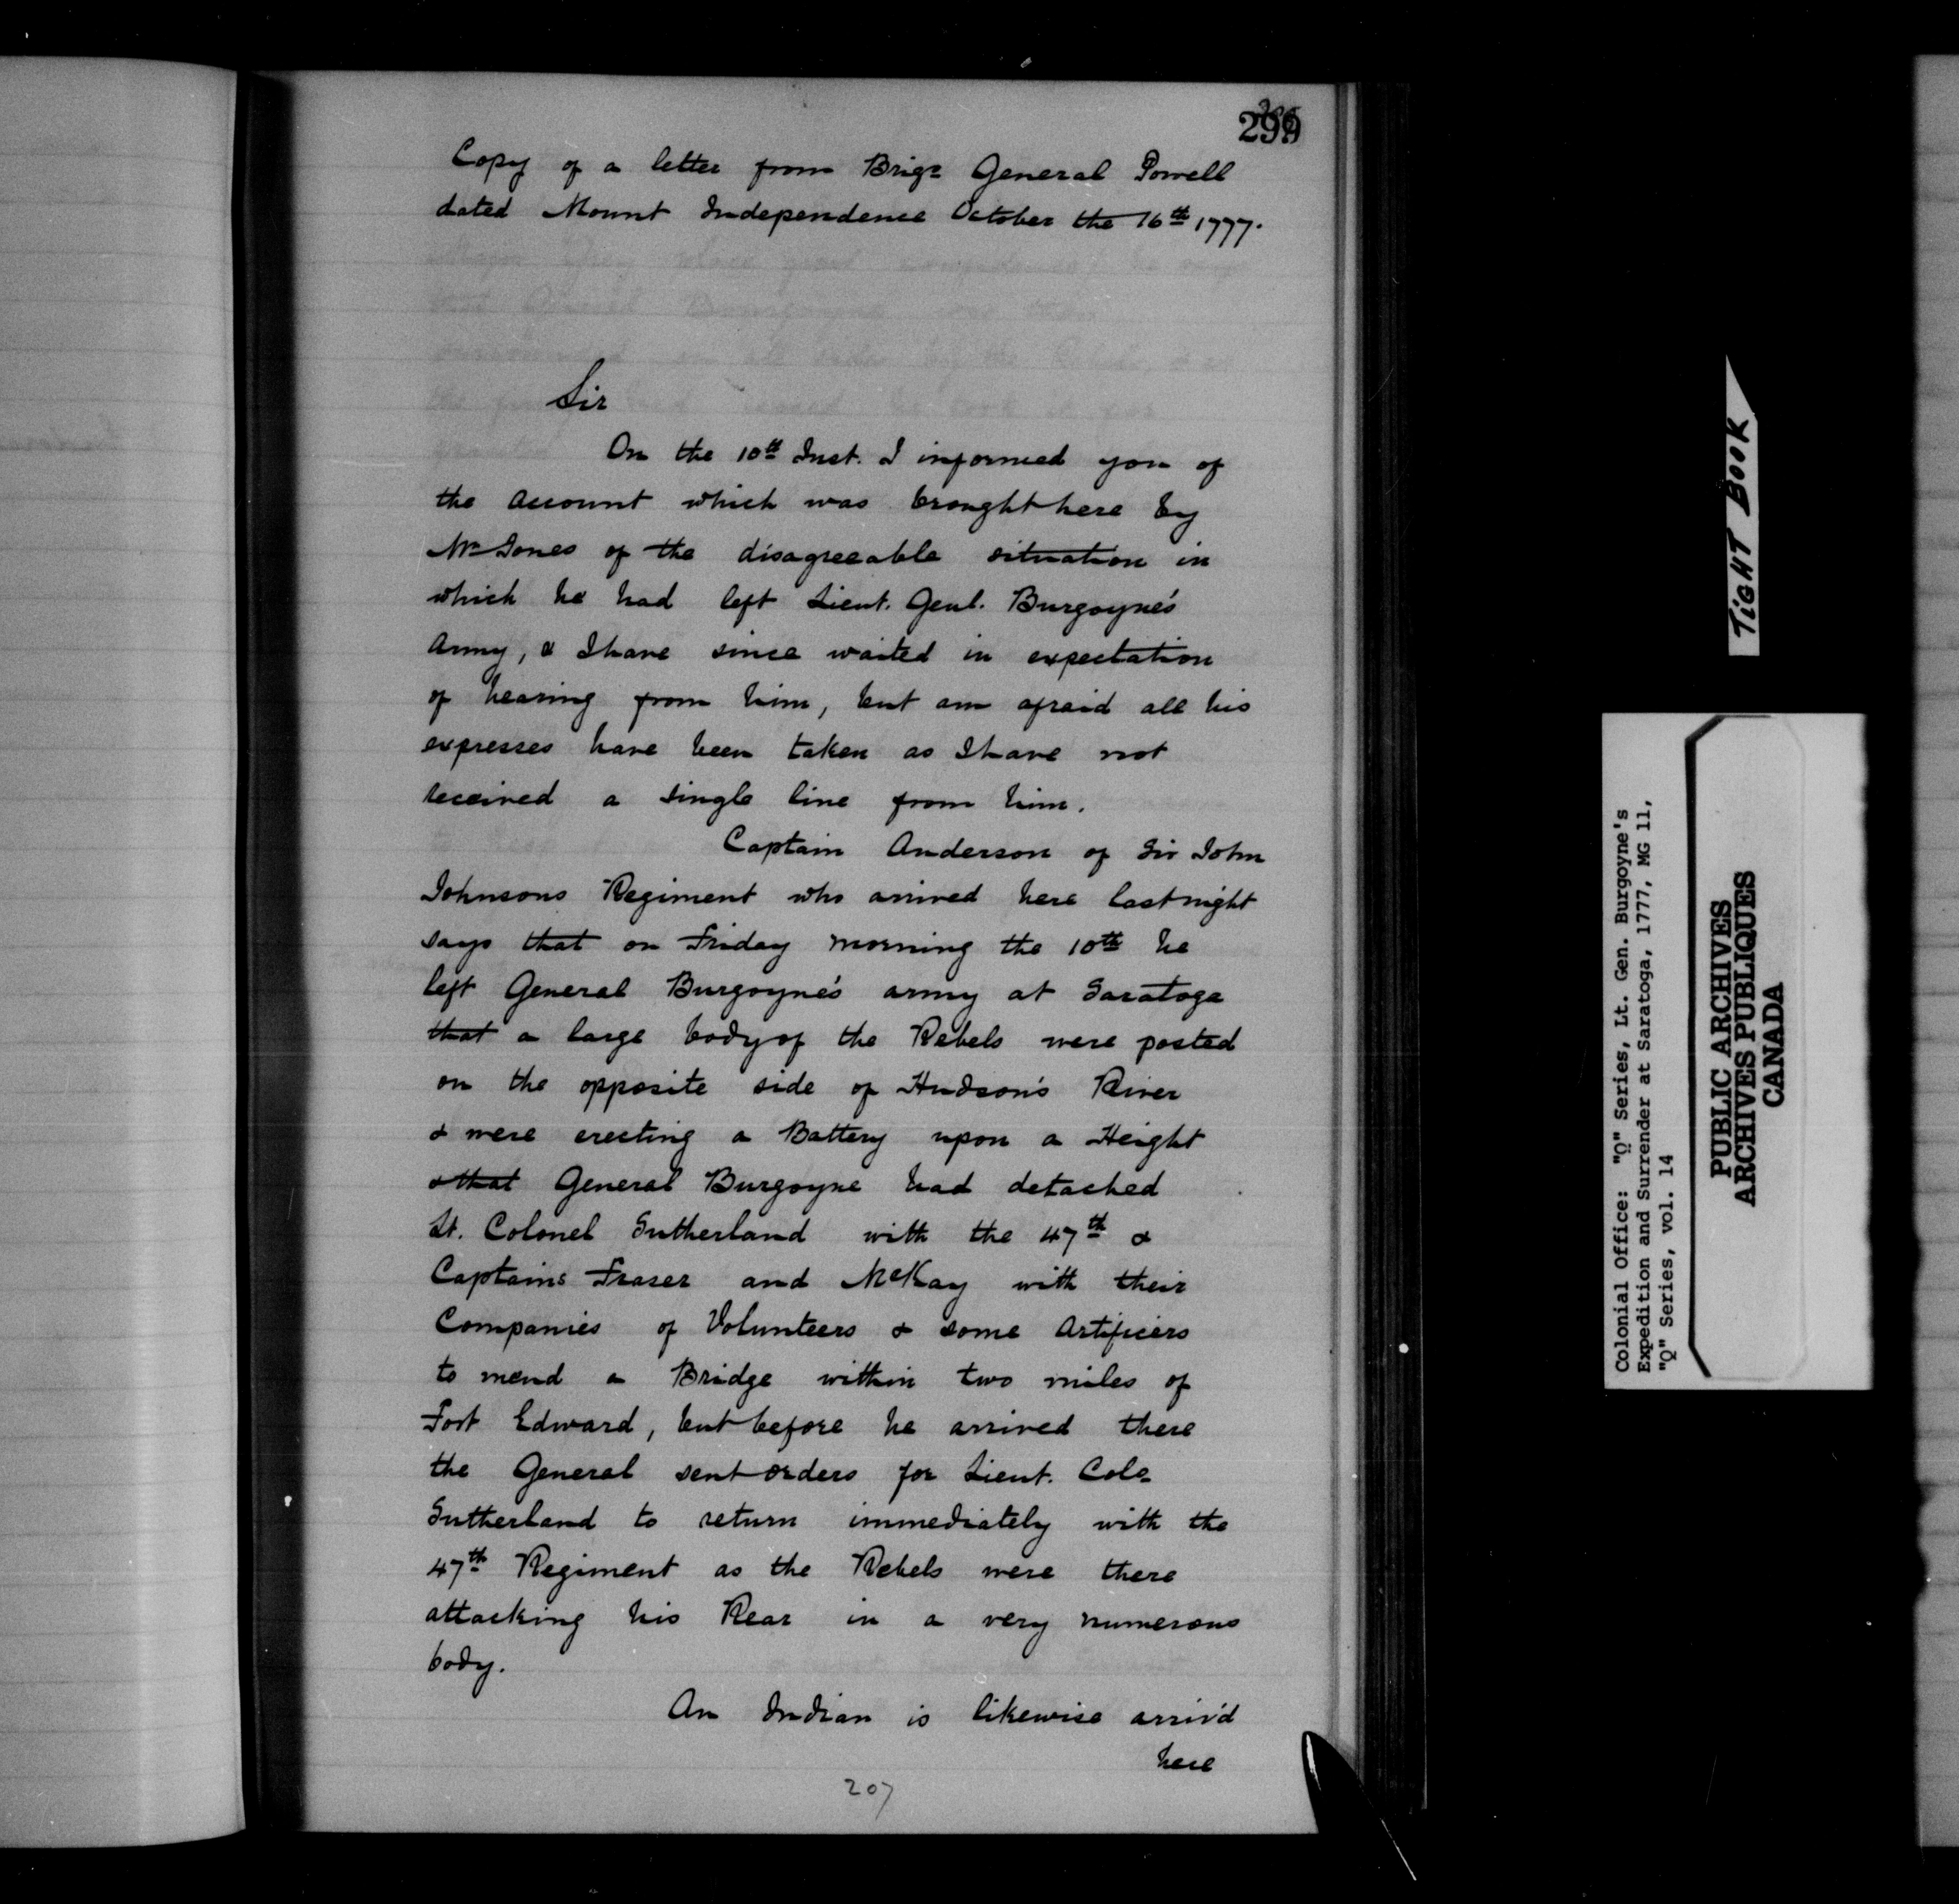 299
Copy of a letter from Brigr General Powell
dated Mount Independence October the 16th 1777.
Sir
On the 10th Inst. I informed you of
the account which was brought here by
Mr Jones of the disagreeable situation in
which he had left Lieut. Genl. Burgoyne's
Army, & I have since waited in expectation
of hearing from him, but am afraid all his
expresses have been taken as I have not
received a single line from him.
Captain Anderson of Sir John
Johnsons Regiment who arrived here last night
says that on Friday morning the 10th he
left General Burgoyne's army at Saratoga
that a large body of the Rebels were posted
on the opposite side of Hudson's River
& were erecting a Battery upon a Height
& that General Burgoyne had detached
Lt. Colonel Sutherland with the 47th &
Captains Fraser and McKay with their
Companies of Volunteers & some Artificers
to mend a Bridge within two miles of
Fort Edward, but before he arrived there
the General sent orders for Lieut. Colo
Sutherland to return immediately with the
47th Regiment as the Rebels were there
attacking his Rear in a very numerous
body.
An Indian is likewise arriv'd
here
207
TIGHT BOOK
Colonial Office: "Q" Series, Lt. Gen. Burgoyne's
Expedition and Surrender at Saratoga, 1777, MG 11,
"Q" Series, vol. 14
PUBLIC ARCHIVES
ARCHIVES PUBLIQUES
CANADA